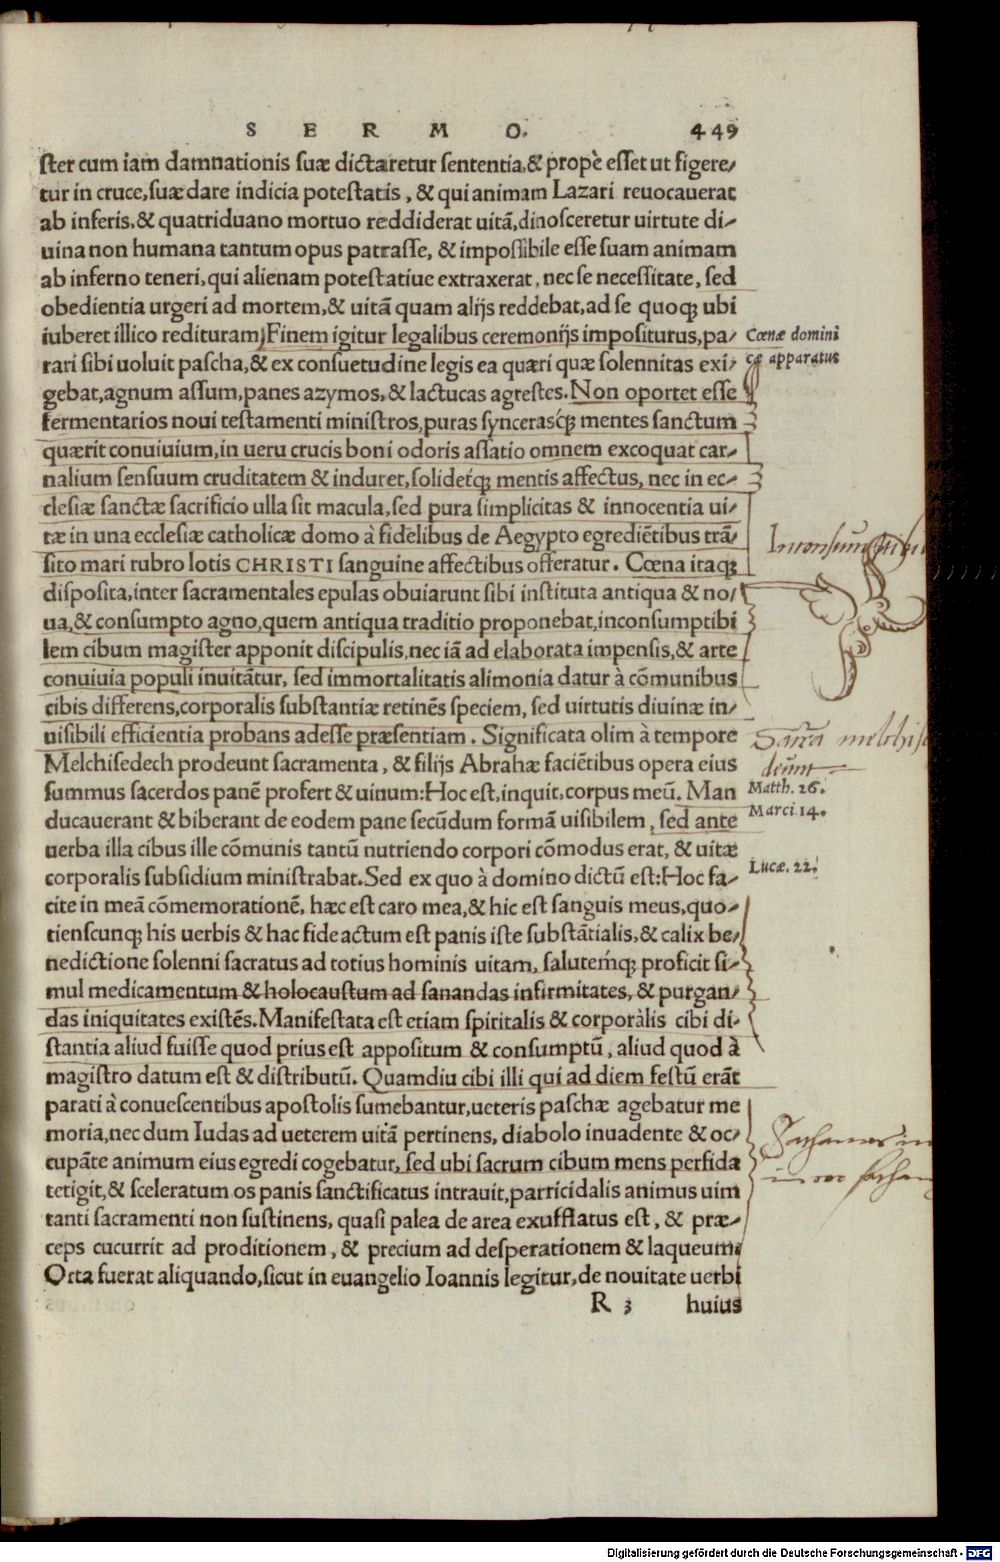 S E R M O. 449
ster cum iam damnationis suæ dictaretur sententia,& propè esset ut figere⸗
tur in cruce,suæ dare indicia potestatis , & qui animam Lazari reuocauerat
ab inferis,& quatriduano mortuo reddiderat uitã,dinosceretur uirtute di⸗
uina non humana tantum opus patrasse, & impossibile esse suam animam
ab inferno teneri,qui alienam potestatiue extraxerat, nec se necessitate, sed
obedientia urgeri ad mortem,& uitã quam alijs reddebat,ad se quoqꝫ ubi
iuberet illico redituram, Finem igitur legalibus ceremonijs impositurus,pa⸗
Cœnæ domini
rari sibi uoluit pascha,& ex consuetudine legis ea quæri quæ solennitas exi⸗
cæ apparatus
gebat,agnum assum,panes azymos,& lactucas agrestes. Non oportet esse
fermentarios noui testamenti ministros,puras syncerasq́ꝫ mentes sanctum
quærit conuiuium,in ueru crucis boni odoris assatio omnem excoquat car⸗
nalium sensuum cruditatem & induret,solidetq́ꝫ mentis affectus, nec in ec⸗
clesiæ sanctæ sacrificio ulla sit macula,sed pura simplicitas & innocentia ui⸗
tæ in una ecclesiæ catholicæ domo à fidelibus de Aegypto egrediẽtibus trã⸗
sito mari rubro lotis CHRISTI sanguine affectibus offeratur. Cœna itaqꝫ
disposita,inter sacramentales epulas obuiarunt sibi instituta antiqua & no⸗
ua,& consumpto agno,quem antiqua traditio proponebat,inconsumptibi
lem cibum magister apponit discipulis,nec iã ad elaborata impensis,& arte
conuiuia populi inuitãtur, sed immortalitatis alimonia datur à cõmunibus
cibis differens,corporalis substantiæ retinẽs speciem, sed uirtutis diuinæ in⸗
uisibili efficientia probans adesse præsentiam. Significata olim à tempore
Melchisedech prodeunt sacramenta, & filijs Abrahæ faciẽtibus opera eius
summus sacerdos panẽ profert & uinum:Hoc est,inquit,corpus meũ. Man
Matth. 26.
ducauerant & biberant de eodem pane secũdum formã uisibilem, sed ante
Marci 14.
uerba illa cibus ille cõmunis tantũ nutriendo corpori cõmodus erat, & uitæ
corporalis subsidium ministrabat.Sed ex quo à domino dictũ est:Hoc fa⸗
Lucæ. 22.
cite in meã cõmemorationẽ, hæc est caro mea,& hic est sanguis meus,quo⸗
tienscunqꝫ his uerbis & hac fide actum est panis iste substãtialis,& calix be⸗
nedictione solenni sacratus ad totius hominis uitam, salutemq́ꝫ proficit si⸗
mul medicamentum & holocaustum ad sanandas infirmitates, & purgan⸗
das iniquitates existẽs.Manifestata est etiam spiritalis & corporàlis cibi di⸗
stantia aliud fuisse quod prius est appositum & consumptũ, aliud quod à
magistro datum est & distributũ. Quamdiu cibi illi qui ad diem festũ erãt
parati à conuescentibus apostolis sumebantur,ueteris paschæ agebatur me
moria,nec dum Iudas ad ueterem uitã pertinens, diabolo inuadente & oc⸗
cupãte animum eius egredi cogebatur, sed ubi sacrum cibum mens perfida
tetigit,& sceleratum os panis sanctificatus intrauit,parricidalis animus uim
tanti sacramenti non sustinens, quasi palea de area exufflatus est, & præ⸗
ceps cucurrit ad proditionem, & precium ad desperationem & laqueum.
Orta fuerat aliquando,sicut in euangelio Ioannis legitur,de nouitate uerbi
R 3 huius
Digitalisierung gefördert durch die Deutsche Forschungsgemeinschaft - DFG